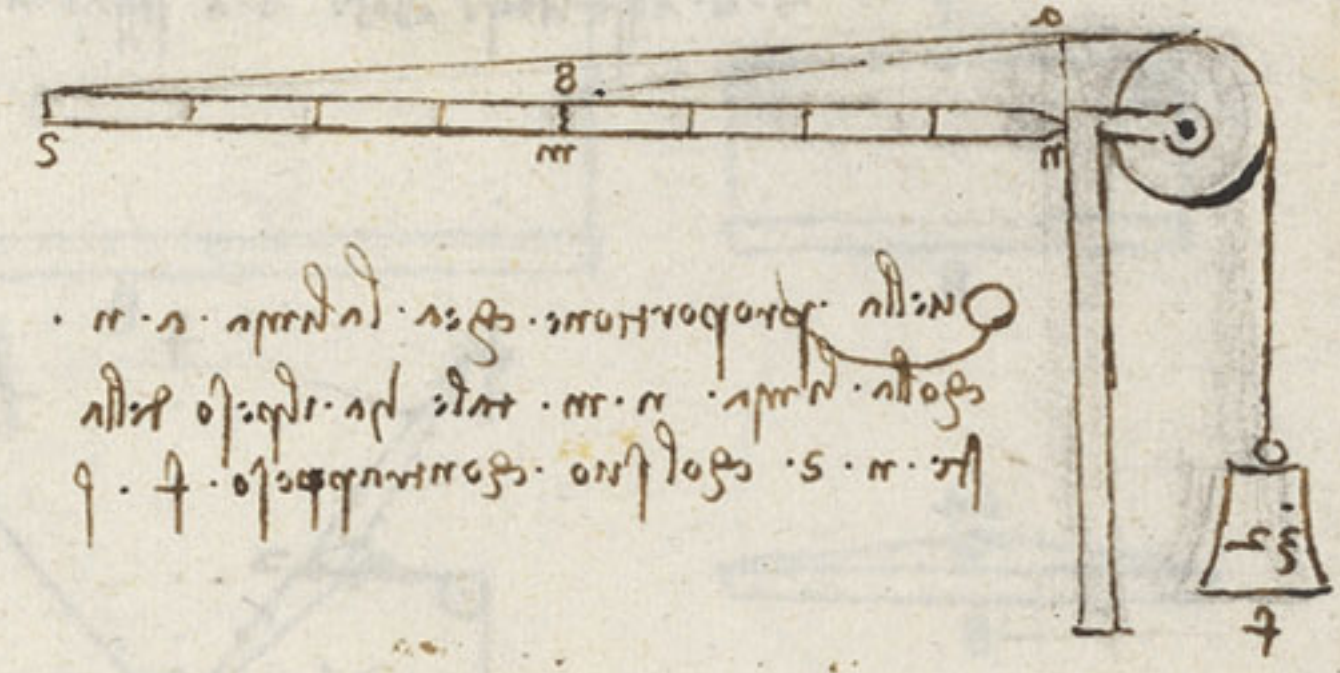 a
8
s m n
Quella · proportione · che · a · la linja · a · n ·
colla · linja · n · m · tale · ha · il peso della
ste · n · s · col suo · contrappeso · f ·
f